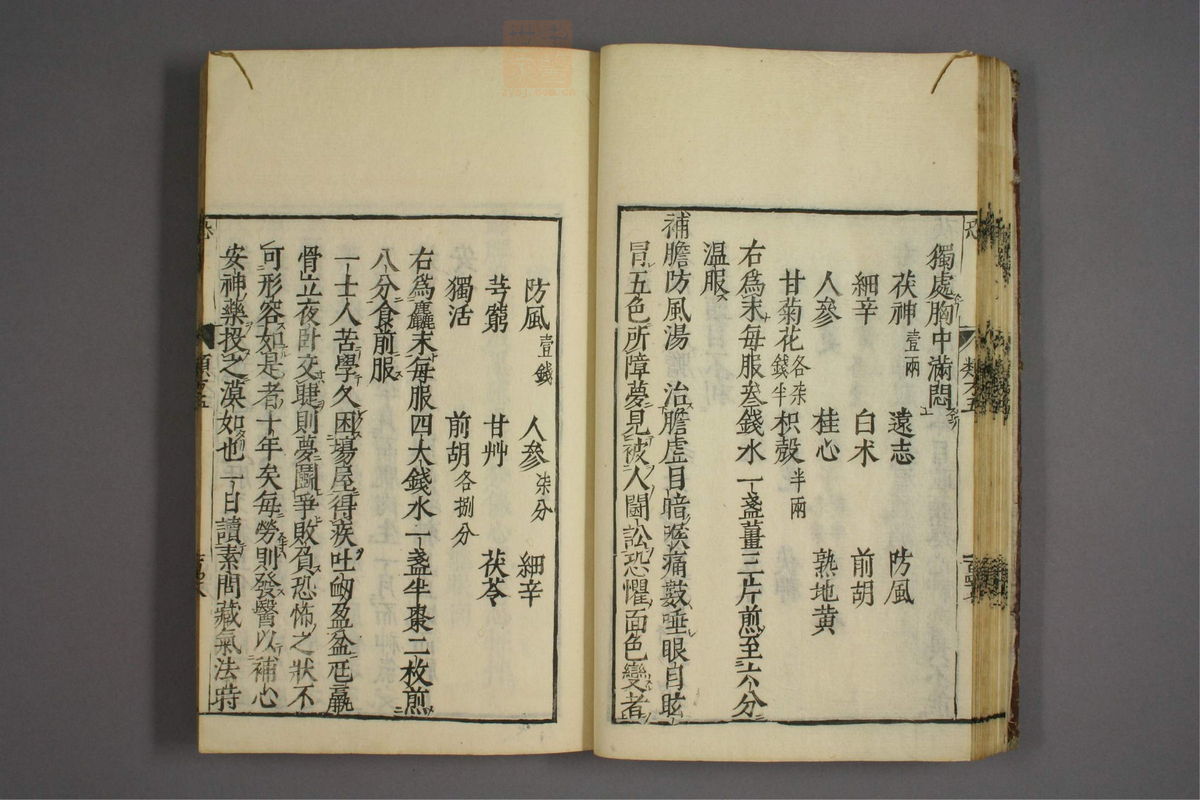 獨處胸中滿悶
茯神壹兩 遠志 防風
細辛 白朮 前胡
人參 桂心 熟地黄
甘菊花各柒錢半 枳殼半兩
右爲末每服叁錢水一盞薑三片煎至六分
温服
補膽防風湯 治膽虛目暗喉痛數唾眼目眩
冒五色所障夢見被人鬭訟恐懼面色變者
防風壹錢 人參柒分 細辛
芎藭 甘艸 茯苓
獨活 前胡各捌分
右爲麤末每服四大錢水一盞半棗二枚煎
八分食前服
一士人苦學久困場屋得疾吐衂盈盆尫羸
骨立夜卧交睫則夢鬭爭敗負恐怖之狀不
可形容如是者十年矣每勞則發醫以補心
安神藥投之漠如也一日讀素問藏氣法時